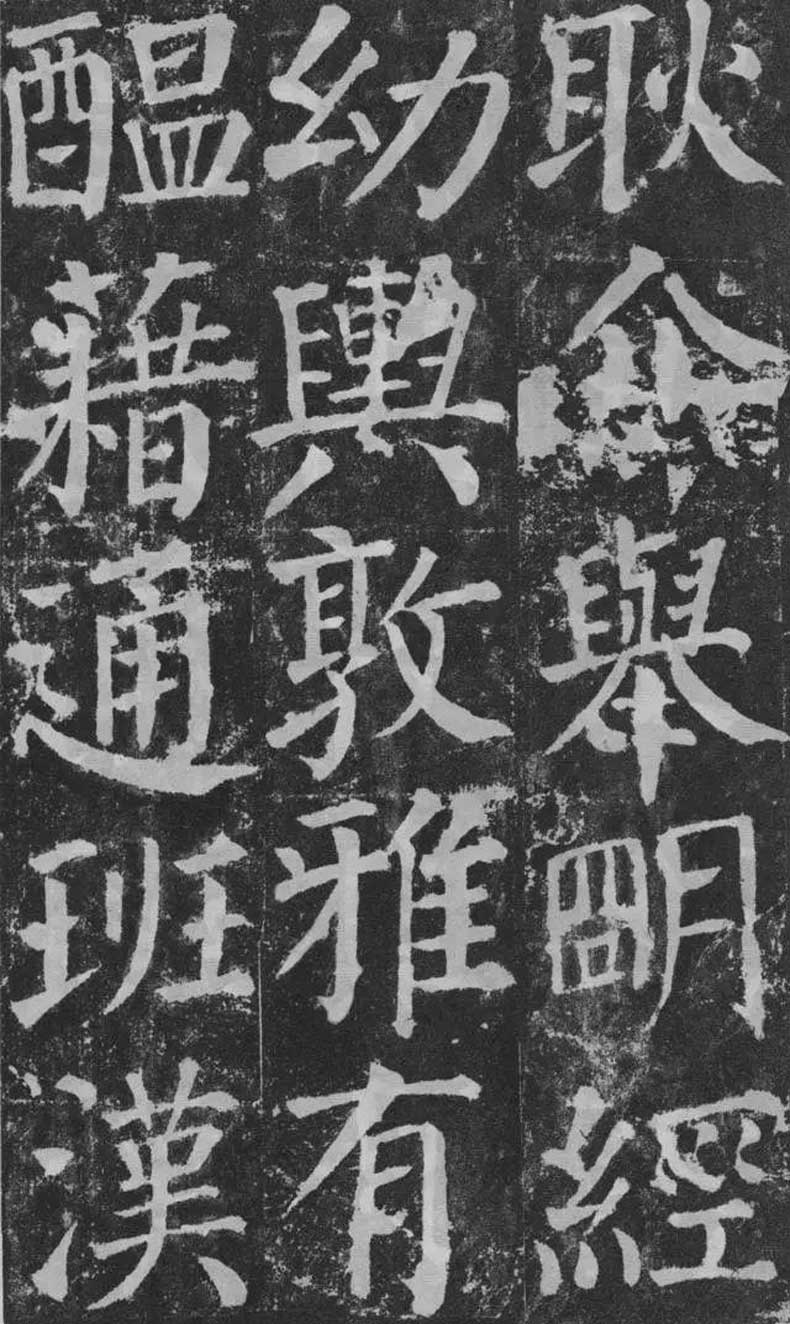 耿舉朙經
幼輿敦雅有
醖藉通班漢